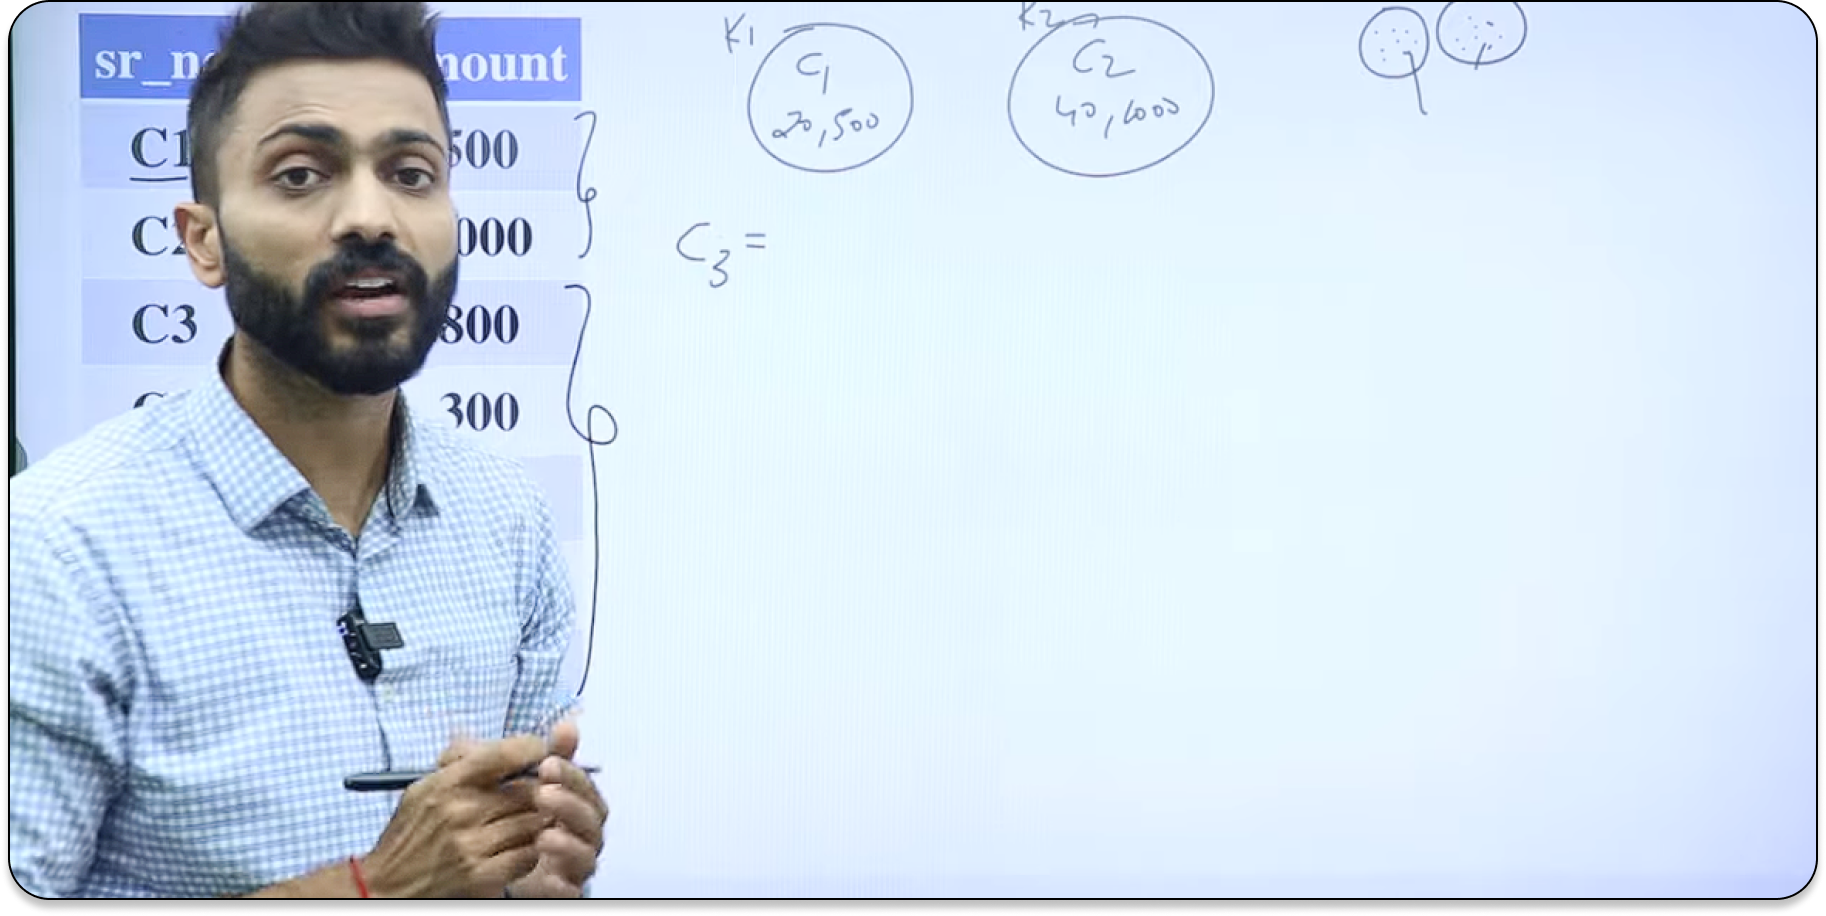 sr_n mount
C1 500
C2 000
C3 800
300
K1 K2
C1 C2
20,500 40,1000
C3 =